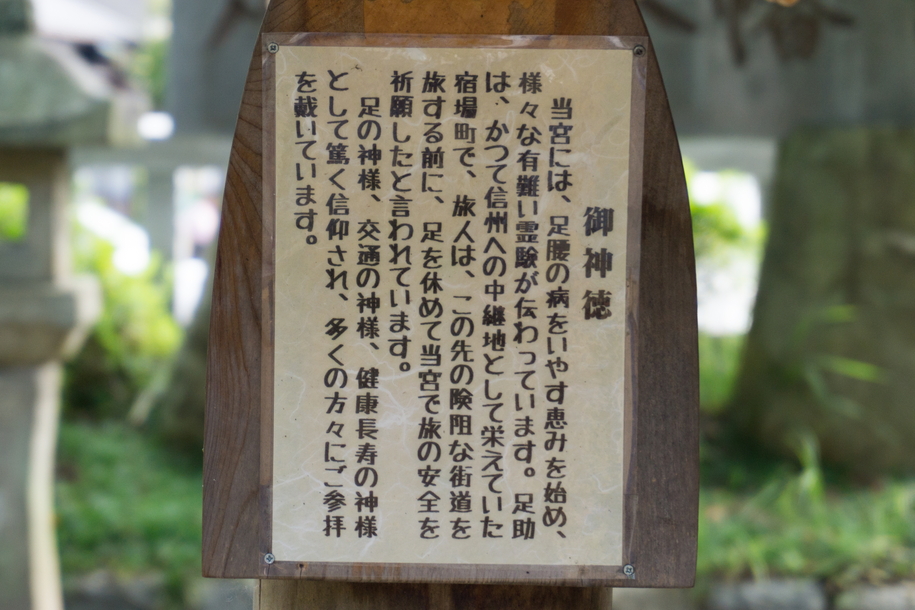 御神徳
当宮には、足腰の病をいやす恵みを始め、
様々な有難い霊験が伝わっています。足助
は、かつて信州への中継地として栄えていた
宿場町で、旅人は、この先の険阻な街道を
旅する前に、足を休めて当宮で旅の安全を
祈願したと言われています。
足の神様、交通の神様、健康長寿の神様
として篤く信仰され、多くの方々にご参拝
を戴いています。